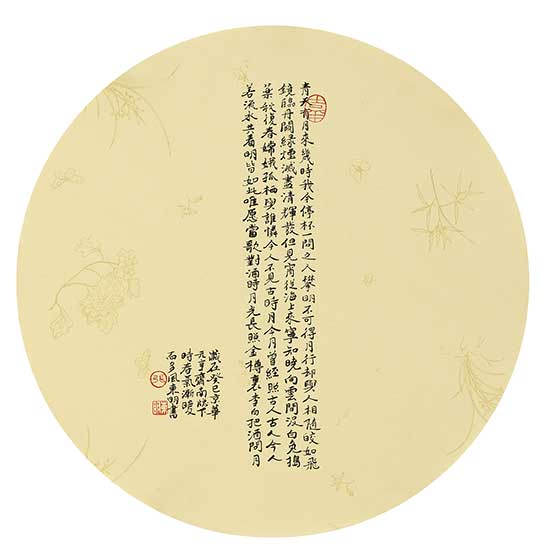 青天有月來幾時我今停杯一問之人攀明不可得月行却與人相隨皎如飛
鏡臨丹闕綠煙滅盡清輝發但見宵從海上來寧知曉向雲間沒白兔搗
藥秋復春嫦娥孤栖與誰憐今人不見古時月今月曾經照古人古人今人
若流水共看明皆如此唯愿當歌對酒時月光長照金樽裏李白把酒問月
歲在癸巳京華
齋南牕下
時春氣漸暖
而多風東明書